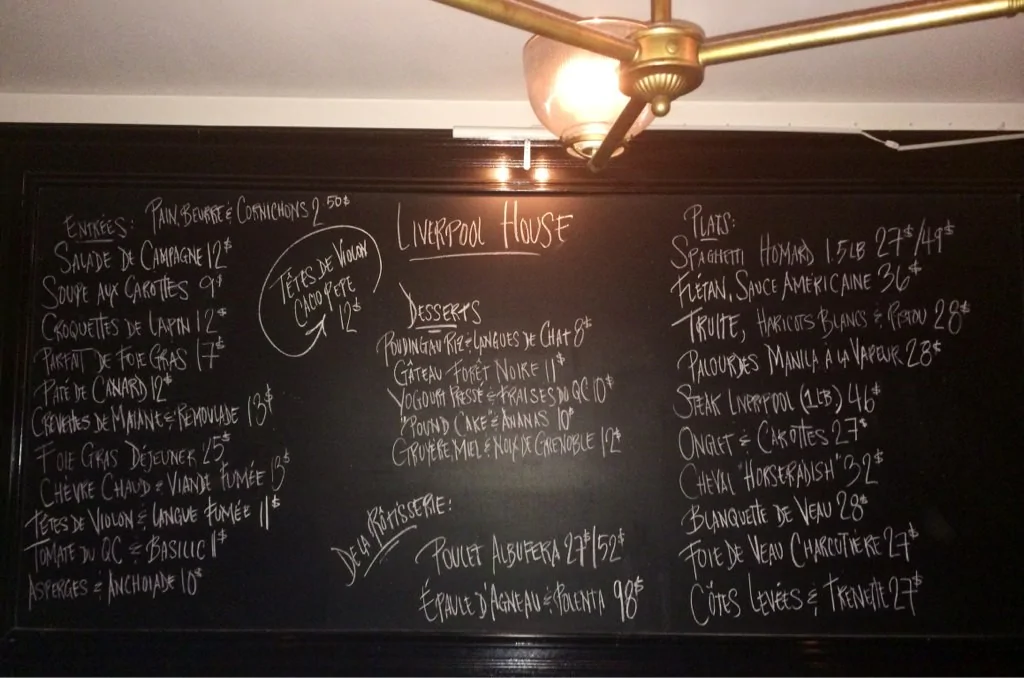 ENTRÉES: PAIN, BEURRE & CORNICHONS 2 50$
SALADE DE CAMPAGNE 12$
SOUPE AUX CAROTTES 9$
CROQUETTES DE LAPIN 12$
PARFAIT DE FOIE GRAS 17$
PATÉ DE CANARD 12$
CREVETTES DE MATANE & REMOULADE 13$
FOIE GRAS DÉJEUNER 25$
CHÈVRE CHAUD & VIANDE FUMÉE 13$
TÊTES DE VIOLON & LANGUE FUMÉE 11$
TOMATE DU QC & BASILIC 11$
ASPERGES & ANCHOIADE 10$
TÊTES DE VIOLON
CACIO PEPE
12$
LIVERPOOL HOUSE
DESSERTS
POUDING AU RIZ & LANGUES DE CHAT 8$
GÂTEAU FORÊT NOIRE 11$
YOGOURT PRESSÉ & FRAISES DU QC 10$
"POUND CAKE" & ANANAS 10$
GRUYÈRE, MIEL & NOIX DE GRENOBLE 12$
DE LA RÔTISSERIE:
POULET ALBUFERA 27$/52$
ÉPAULE D'AGNEAU & POLENTA 98$
PLATS:
SPAGHETTI HOMARD 1.5LB 27$/49$
FLÉTAN, SAUCE AMÉRICAINE 36$
TRUITE, HARICOTS BLANCS & PISTOU 28$
PALOURDES MANILA À LA VAPEUR 28$
STEAK LIVERPOOL (1LB) 46$
ONGLET & CAROTTES 27$
CHEVAL "HORSERADISH" 32$
BLANQUETTE DE VEAU 28$
FOIE DE VEAU CHARCUTIÈRE 27$
CÔTES LEVÉES & TRENETTE 27$